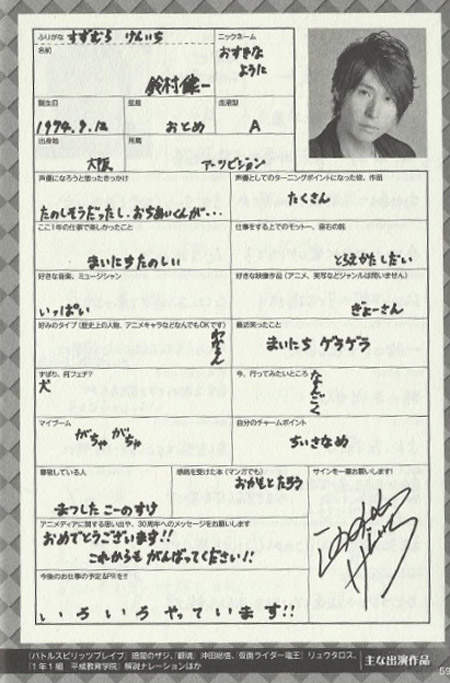 ふりがな すずむら けんいち
ニックネーム
おすきな
ように
名前
鈴村健一
誕生日 星座 血液型
1974.9.12 おとめ A
出身地 所属
大阪 アーツビジョン
声優になろうと思ったきっかけ
たのしそうだったし、おちあいくんが…
声優としてのターニングポイントになった役、作品
たくさん
ここ1年の仕事で楽しかったこと
まいにちたのしい
仕事をする上でのモットー、座右の銘
とらえかたしだい
好きな音楽、ミュージシャン
いっぱい
好きな映像作品(アニメ、実写などジャンルは問いません)
きょーさん
好みのタイプ(歴史上の人物、アニメキャラなどなんでもOKです)
最近笑ったこと
まいにち ゲラゲラ
ずばり、何フェチ?
犬
今、行ってみたいところ
なんごく
マイブーム
がちゃ がちゃ
自分のチャームポイント
ちいさなめ
尊敬している人
まつした こーのすけ
感銘を受けた本(マンガでも)
おかもとたろう
サインを一筆お願いします!
アニメディアに関する思い出や、30周年へのメッセージをお願いします
おめでとうございます!!
これからもがんばってください!!
今後のお仕事の予定&PRを!!
いろいろやっています!!
『バトルスピリッツブレイヴ』暗闇のザジ、『銀魂』沖田総悟、『仮面ライダー電王』リュウタロス、
『1年1組 平成教育学院』解説ナレーションほか
主な出演作品
59